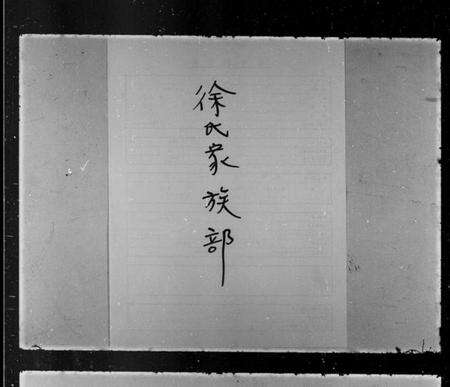 徐氏家族部